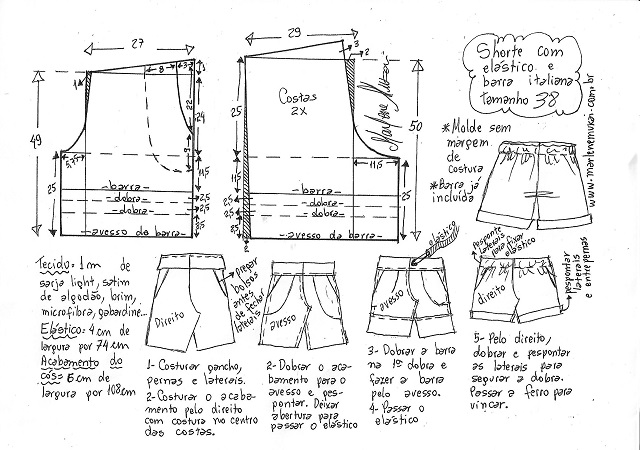 27
29
Shorte com
elástico e
barra italiana
tamanho 38
*Molde sem
margem
de
costura
*Barra já
incluída
www.marlenemukai.com.br
8
3
1
1
22
24
9
49
25
5,75
11,5
2,5
2,5
3,5
-barra-
-dobra-
-dobra-
-avesso da barra-
3
2
Costas
2X
Marlene Mukai
25
50
11,5
11,5
25
25
2
-barra-
-dobra-
-dobra-
-avesso da barra-
Tecido: 1m de
sarja light, satim
de algodão, brim,
microfibra, gabardine...
Elástico: 4cm de
largura por 74cm
Acabamento do
cós: 6cm de
largura por 108cm
Direito
pregar
bolsos
antes
de fechar
laterais
1- Costurar gancho,
pernas e laterais.
2- Costurar o acaba-
mento pelo direito
com costura no centro
das costas.
avesso
2- Dobrar o aca-
bamento para o
avesso e pes-
pontar. Deixar
abertura para
passar o elástico
elástico
avesso
3- Dobrar a barra
na 1ª dobra e
fazer a barra
pelo avesso.
4- Passar o
elástico
pesponte
laterais
para fixar
elástico
direito
pespontar
laterais
e entrepernas
5- Pelo direito,
dobrar e pespontar
as laterais para
segurar a dobra.
Passar a ferro para
vincar.